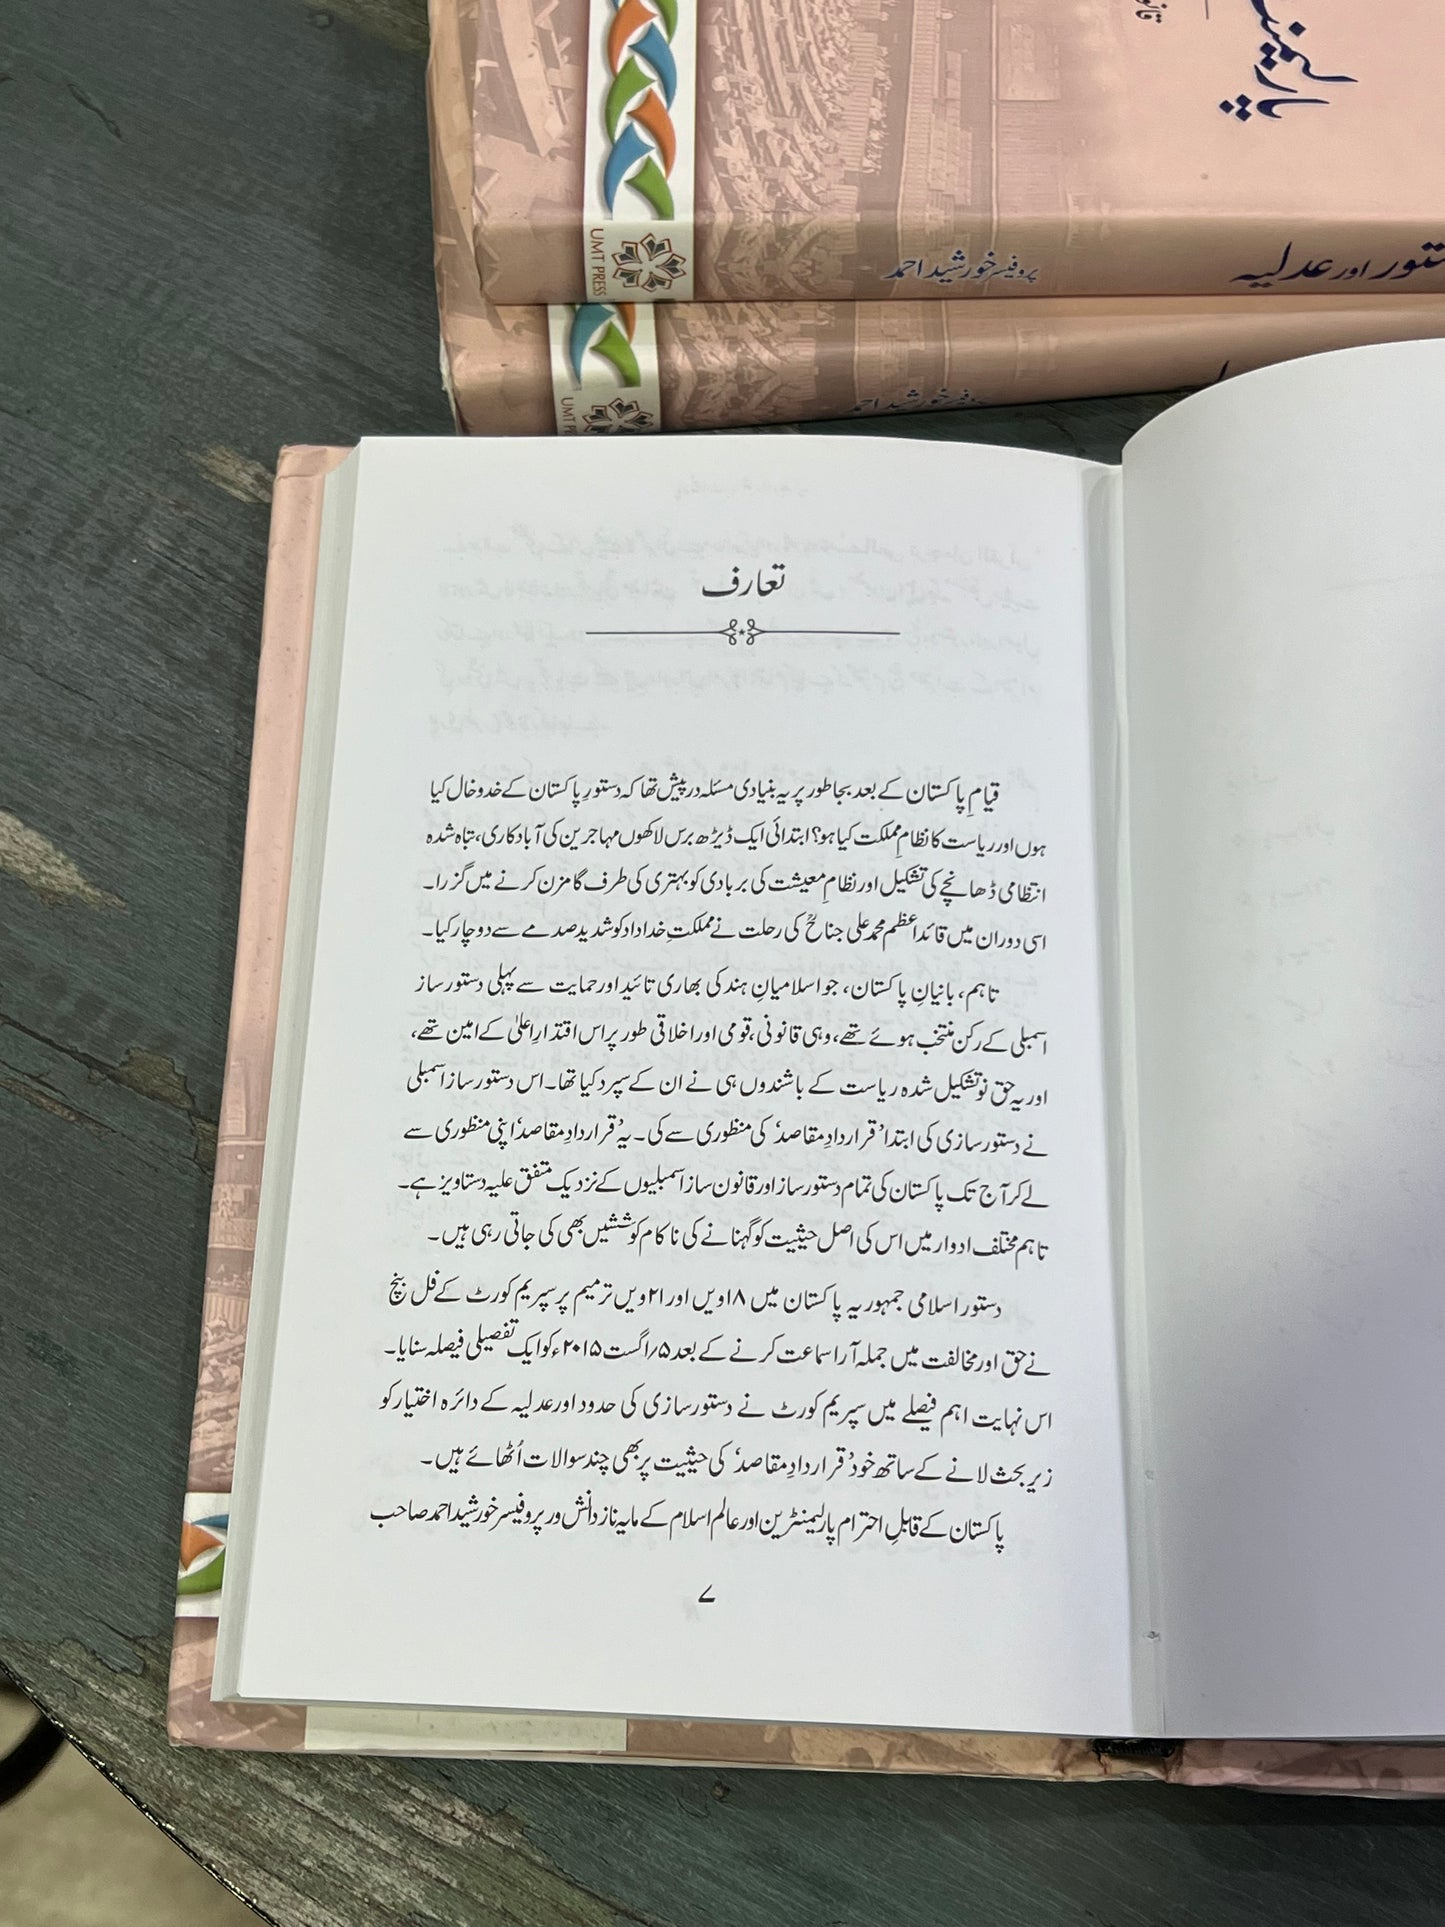 پارلیمنٹ
دستور اور عدلیہ
پروفیسر خورشید احمد
UMT PRESS
پروفیسر خورشید احمد
UMT P
تعارف
قیامِ پاکستان کے بعد بجا طور پر یہ بنیادی مسئلہ درپیش تھا کہ دستورِ پاکستان کے خدوخال کیا
ہوں اور ریاست کا نظامِ مملکت کیا ہو؟ ابتدائی ایک ڈیڑھ برس لاکھوں مہاجرین کی آبادکاری، تباہ شدہ
انتظامی ڈھانچے کی تشکیل اور نظامِ معیشت کی بربادی کو بہتری کی طرف گامزن کرنے میں گزرا۔
اسی دوران میں قائداعظم محمد علی جناحؒ کی رحلت نے مملکتِ خداداد کو شدید صدمے سے دوچار کیا۔
تاہم، بانیانِ پاکستان، جو اسلامیانِ ہند کی بھاری تائید اور حمایت سے پہلی دستور ساز
اسمبلی کے رکن منتخب ہوئے تھے، وہی قانونی، قومی اور اخلاقی طور پر اس اقتدارِ اعلیٰ کے امین تھے،
اور یہ حق نوتشکیل شدہ ریاست کے باشندوں ہی نے ان کے سپرد کیا تھا۔ اس دستور ساز اسمبلی
نے دستور سازی کی ابتدا ’قراردادِ مقاصد‘ کی منظوری سے کی۔ یہ ’قراردادِ مقاصد‘ اپنی منظوری سے
لے کر آج تک پاکستان کی تمام دستور ساز اور قانون ساز اسمبلیوں کے نزدیک متفق علیہ دستاویز ہے۔
تاہم مختلف ادوار میں اس کی اصل حیثیت کو گہنانے کی ناکام کوششیں بھی کی جاتی رہی ہیں۔
دستور اسلامی جمہوریہ پاکستان میں ۱۸ویں اور ۲۱ویں ترمیم پر سپریم کورٹ کے فل بنچ
نے حق اور مخالفت میں جملہ آرا سماعت کرنے کے بعد ۵؍اگست ۲۰۱۵ء کو ایک تفصیلی فیصلہ سنایا۔
اس نہایت اہم فیصلے میں سپریم کورٹ نے دستور سازی کی حدود اور عدلیہ کے دائرہ اختیار کو
زیر بحث لانے کے ساتھ خود ’قراردادِ مقاصد‘ کی حیثیت پر بھی چند سوالات اُٹھائے ہیں۔
پاکستان کے قابلِ احترام پارلیمنٹرین اور عالم اسلام کے مایہ ناز دانش ور پروفیسر خورشید احمد صاحب
۷